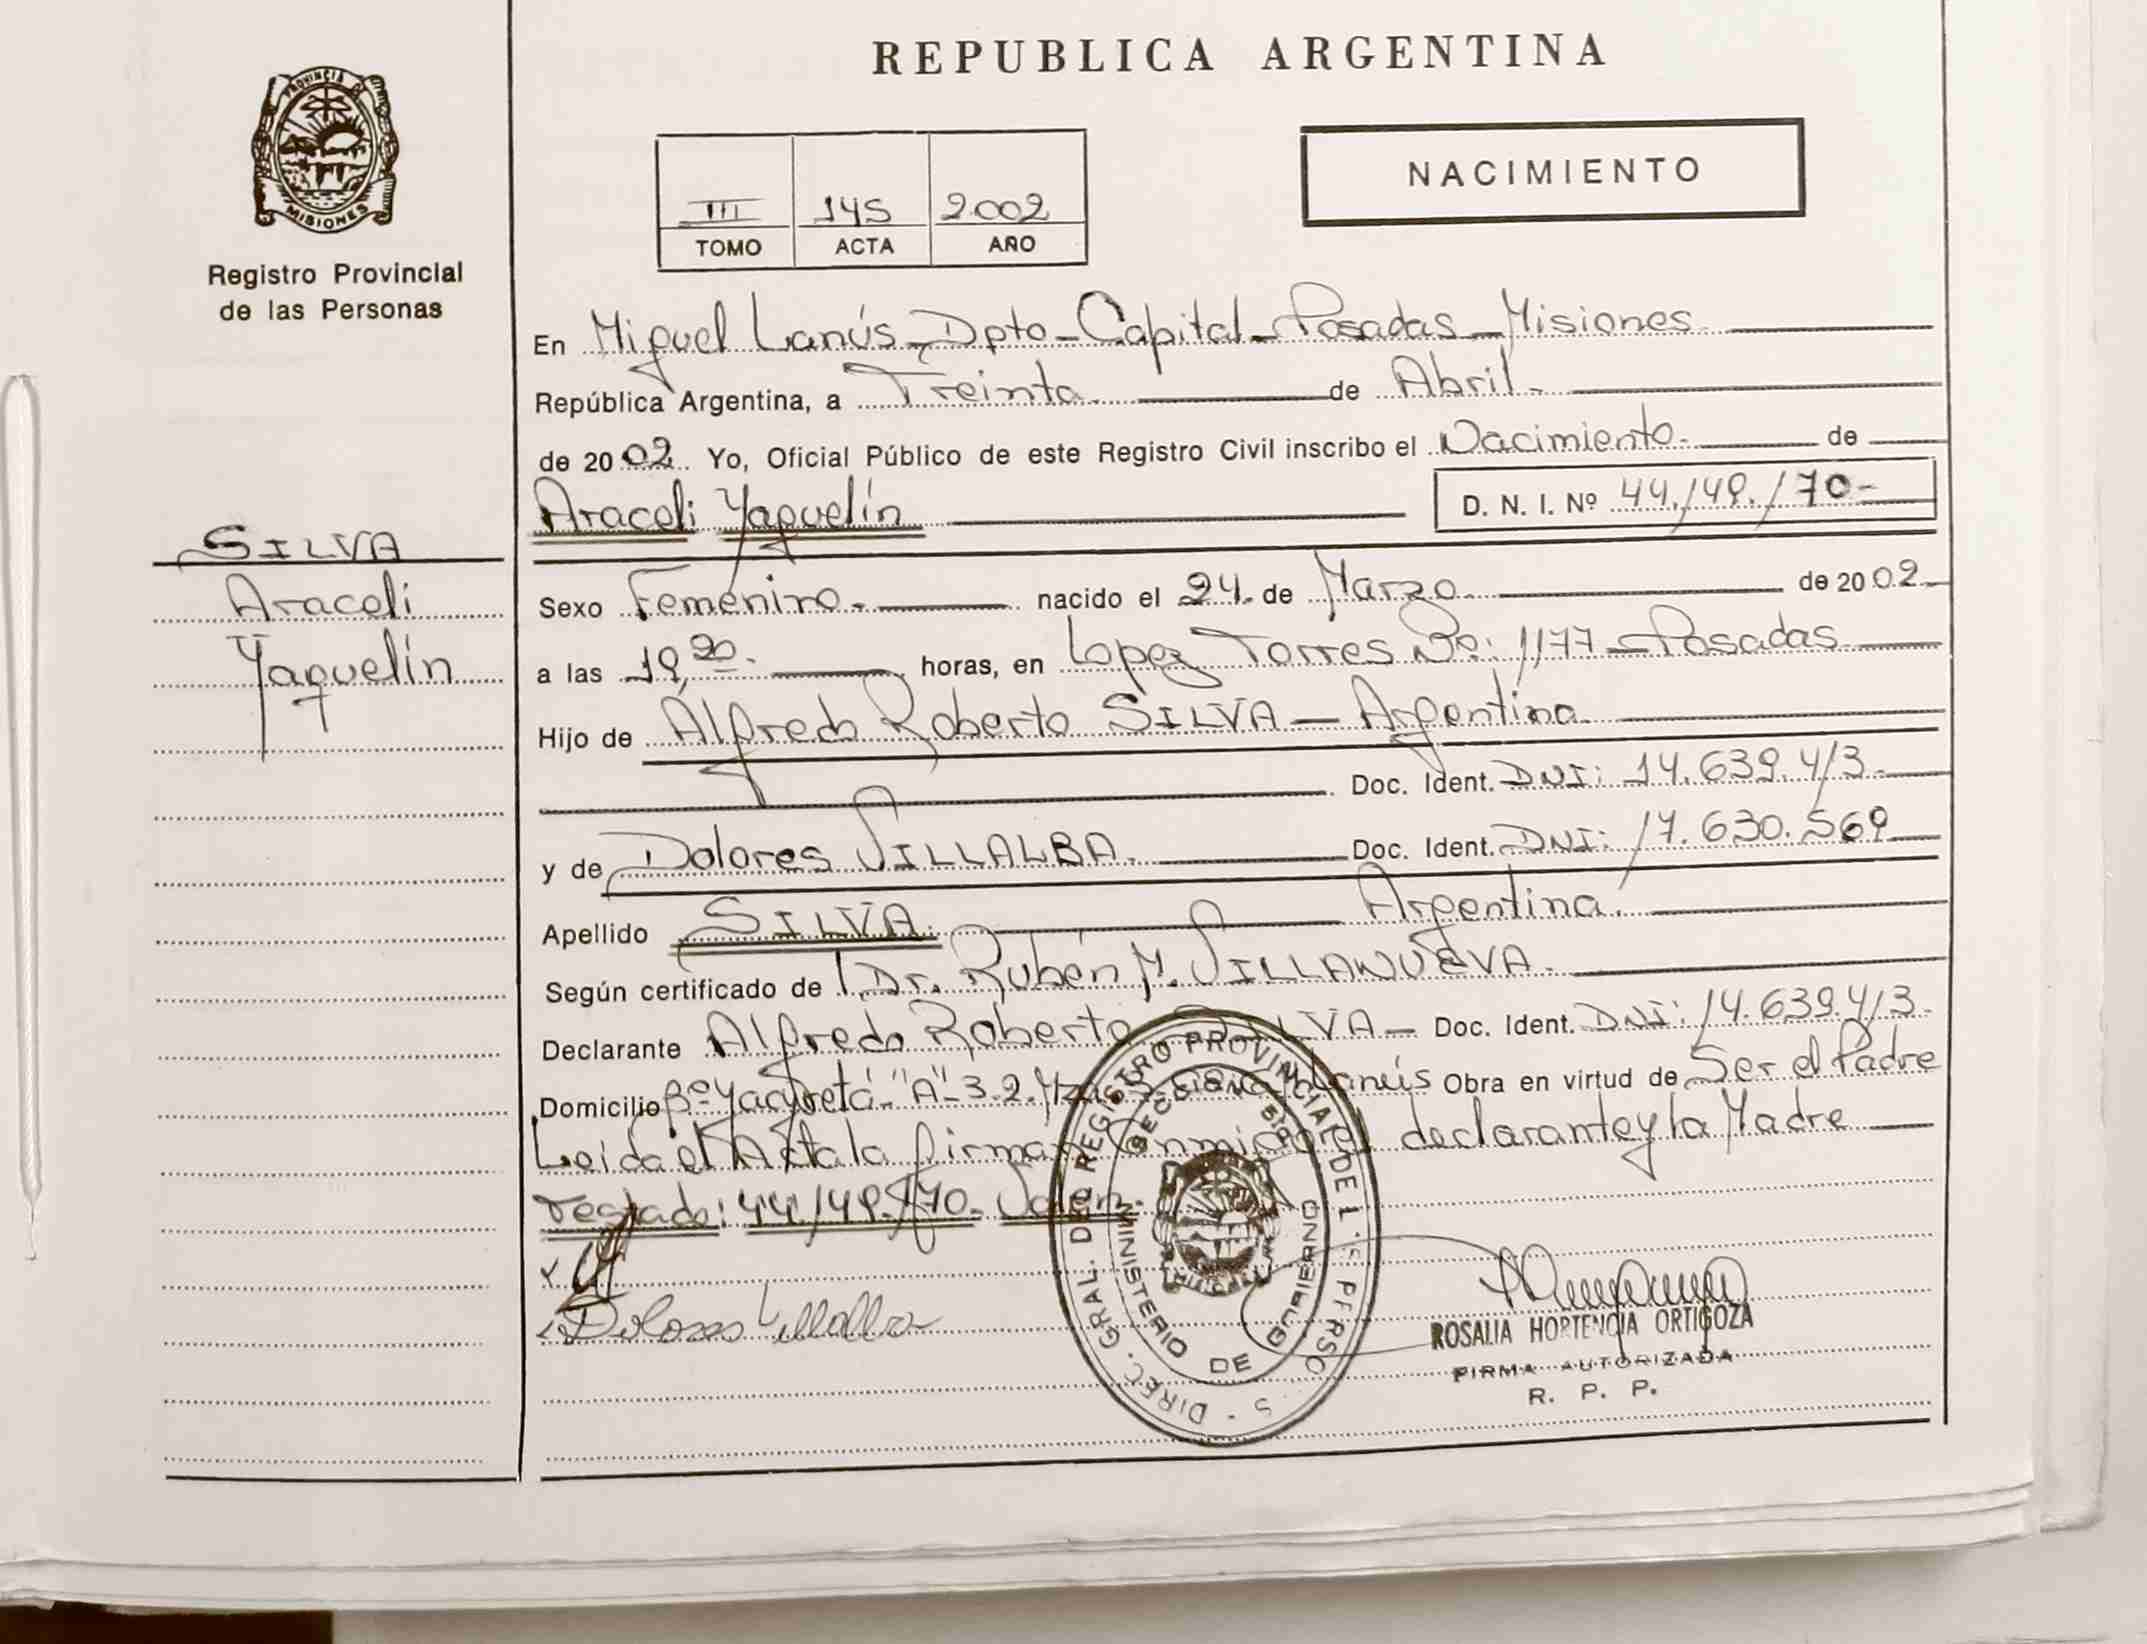 REPUBLICA ARGENTINA
PROVINCIA DE
MISIONES
Registro Provincial
de las Personas
III 145 2.002
TOMO ACTA AÑO
NACIMIENTO
En Miguel Lanús - Dpto - Capital - Posadas - Misiones
República Argentina, a Treinta de Abril.-
de 2002. Yo, Oficial Público de este Registro Civil inscribo el Nacimiento.- de
Araceli Yaquelín
D. N. I. Nº 44./49./70-
SILVA
Araceli
Yaquelín
Sexo Femenino.- nacido el 24. de Marzo. de 2002.-
a las 19,20. horas, en Lopez Torres Nº: 1177 - Posadas
Hijo de Alfredo Roberto SILVA - Argentina.
Doc. Ident. DNI: 14.639.413.-
y de Dolores VILLALBA. Doc. Ident. DNI: 17.630.569
Apellido SILVA. Argentina.
Según certificado de Dr. Rubén M. VILLANUEVA.
Declarante Alfredo Roberto SILVA - Doc. Ident. DNI: 14.639.413.
Domicilio Bº Yacyretá "A" 3.2. Lanús Obra en virtud de Ser el Padre
Leida el Acta la firman conmigo el declarante y la Madre
Testado: 44/49./70- Valen.
Dolores Villalba
DIREC. GRAL. DEL REGISTRO PROVINCIAL DE L S PERSO S
MINISTERIO DE GOBIERNO
ROSALIA HORTENCIA ORTIGOZA
FIRMA AUTORIZADA
R. P. P.